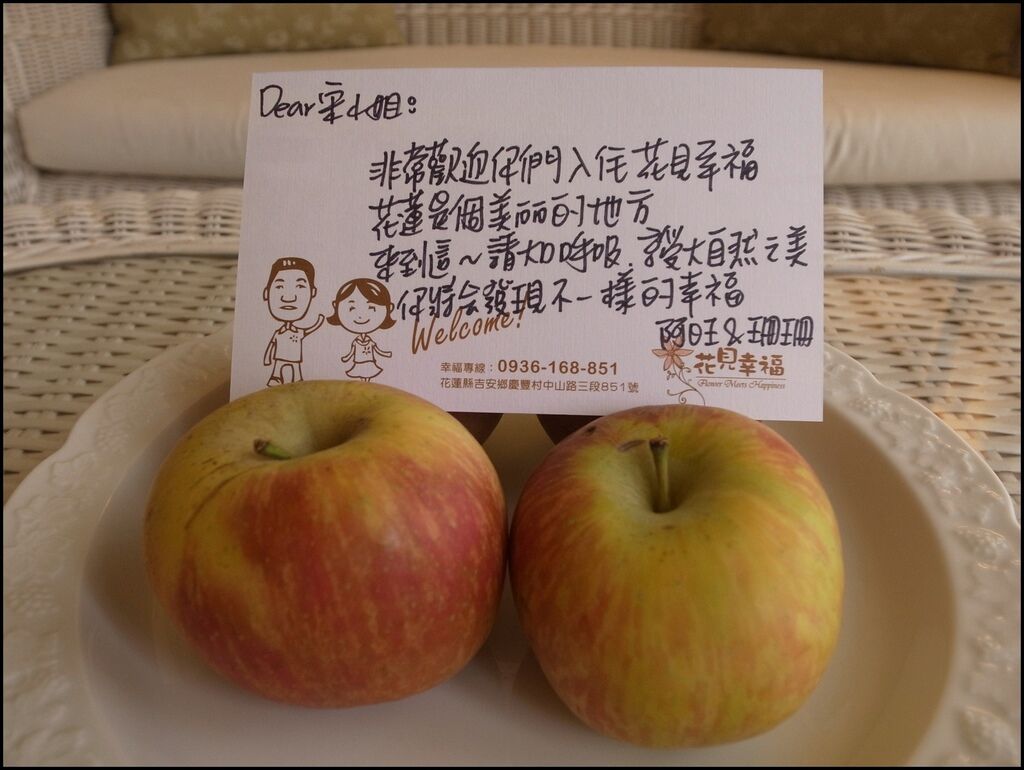 Dear 宋小姐：
非常歡迎你們入住花見幸福
花蓮是個美丽的地方
來到這～請大口呼吸．享受大自然之美
你將會發現不一樣的幸福
阿旺&珊珊
Welcome!
幸福專線：0936-168-851
花蓮縣吉安鄉慶豐村中山路三段851號
花見幸福
Flower Meets Happiness